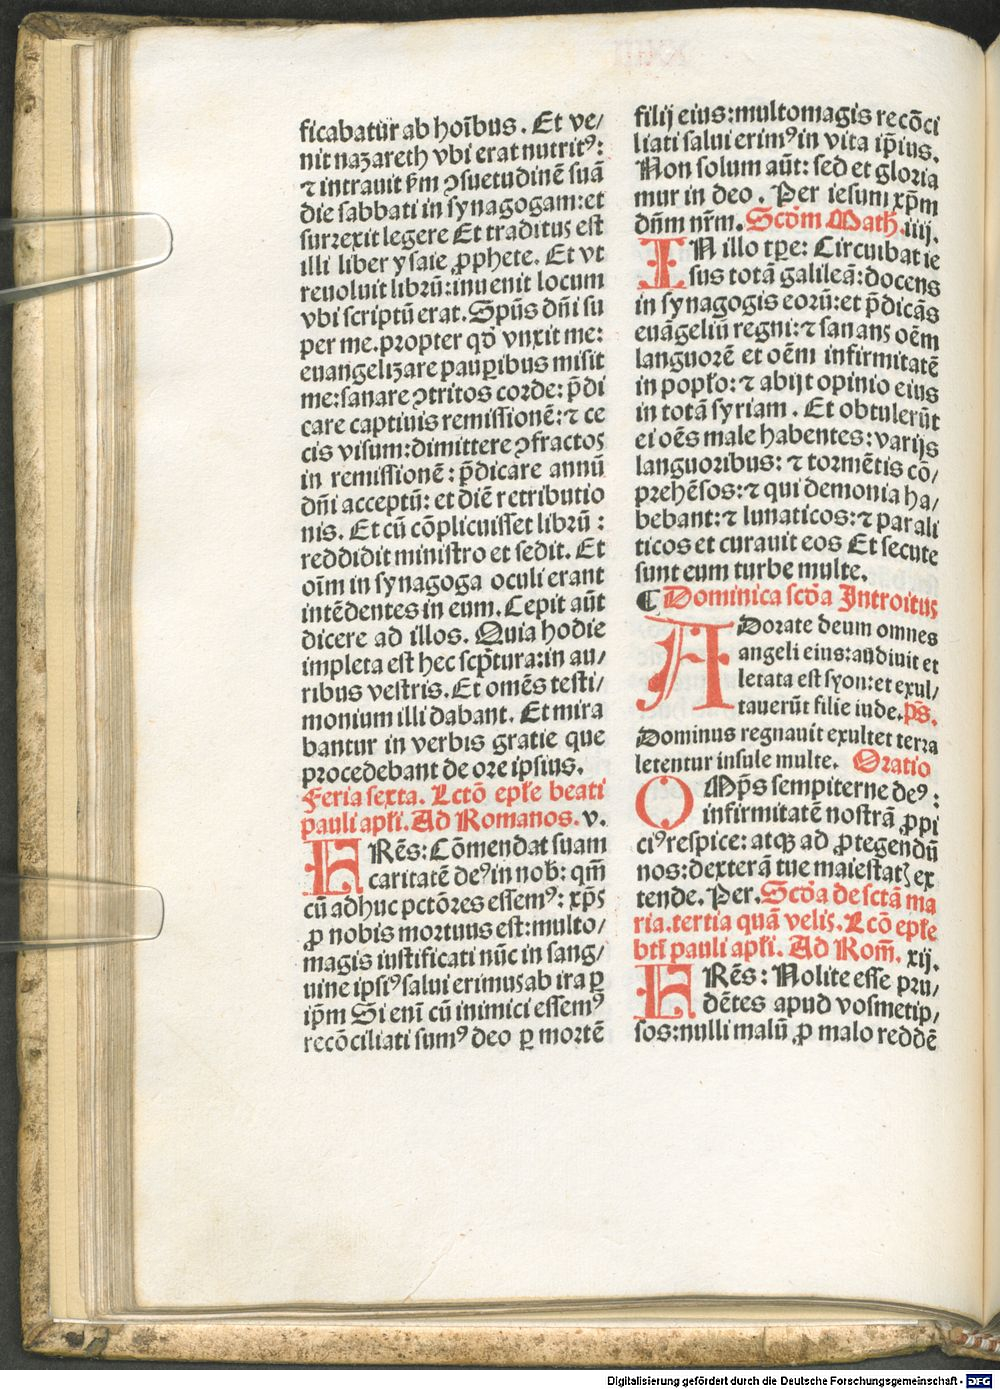 ficabatur ab hoĩbus. Et ve/
nit nazareth vbi erat nutritꝰ:
⁊ intrauit ẜm ↄsuetudinẽ suã
die sabbati in synagogam: et
surrexit legere Et traditus est
illi liber ysaie ꝓphete. Et vt
reuoluit librũ: inuenit locum
vbi scriptũ erat. Spũs dñi su
per me. propter qđ vnxit me:
euangelizare pauꝑibus misit
me: sanare ↄtritos corde: p̃di
care captiuis remissionẽ: ⁊ ce
cis visum: dimittere ↄfractos
in remissionẽ: p̃dicare annũ
dñi acceptũ: et diẽ retributio
nis. Et cũ cõplicuisset librũ:
reddidit ministro et sedit. Et
oĩm in synagoga oculi erant
intẽdentes in eum. Cepit aũt
dicere ad illos. Quia hodie
impleta est hec scp̃tura: in au/
ribus vestris. Et omẽs testi/
monium illi dabant. Et mira
bantur in verbis gratie que
procedebant de ore ipsius.
Feria sexta. Lctõ ep̃le beati
pauli apl̃i. Ad Romanos. v.
FRẽs: Cõmendat suam
caritatẽ deꝰ in nob̃: qm̃
cũ adhuc pctõres essemꝰ: xp̃s
ꝓ nobis mortuus est: multo/
magis iustificati nũc in sang/
uine ipsiꝰ salui erimus ab ira ꝑ
ip̃m Si enĩ cũ inimici essemꝰ
recõciliati sumꝰ deo ꝑ mortẽ
filij eius: multomagis recõci
liati salui erimꝰ in vita ip̃ius.
Non solum aũt: sed et gloria
mur in deo. Per iesum xp̃m
dñm nr̃m. Scđm Math. iiij.
IN illo tp̃e: Circuibat ie
sus totã galileã: docens
in synagogis eorũ: et p̃dicãs
euãgeliũ regni: ⁊ sanans oẽm
languorẽ et oẽm infirmitatẽ
in popl̃o: ⁊ abijt opinio eius
in totã syriam. Et obtulerũt
ei oẽs male habentes: varijs
languoribus: ⁊ tormẽtis cõ/
prehẽsos: ⁊ qui demonia ha/
bebant: ⁊ lunaticos: ⁊ parali
ticos et curauit eos Et secute
sunt eum turbe multe.
¶ Dominica scđa Introitus
ADorate deum omnes
angeli eius: audiuit et
letata est syon: et exul/
tauerũt filie iude. p̃s.
Dominus regnauit exultet terra
letentur insule multe. Oratio
OMp̃s sempiterne deꝰ:
infirmitatẽ nostrã ꝓpi
ciꝰ respice: atqꝫ ad ꝓtegendũ
nos: dexterã tue maiestatꝭ ex
tende. Per. Scđa de sctã ma
ria. tertia quã velis. Lcõ ep̃le
bt̃i pauli apl̃i. Ad Rom̃. xij.
FRẽs: Nolite esse pru/
dẽtes apud vosmetip/
sos: nulli malũ ꝓ malo reddẽ
Digitalisierung gefördert durch die Deutsche Forschungsgemeinschaft - DFG